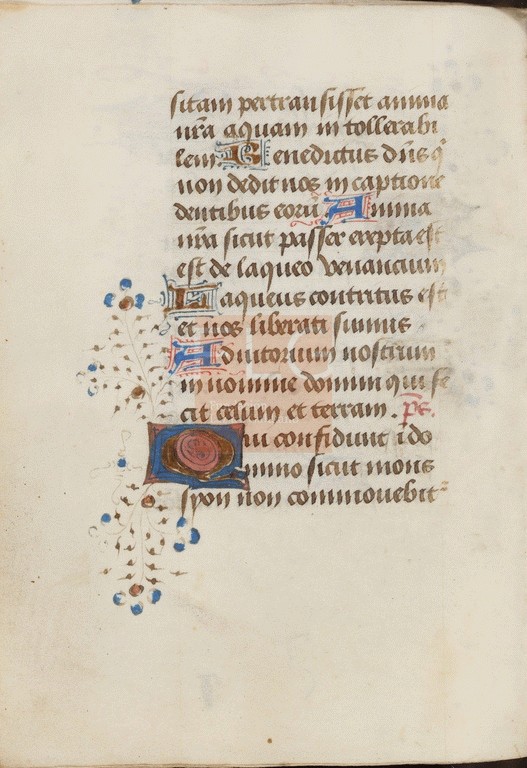 sitam pertransisset anima
nr̃a aquam in tollerabi
lem. Benedictus dñs q̃
non dedit nos in captione
dentibus eorũ. Anima
nr̃a sicut passer erepta est
est de laqueo venancium
Laqueus contritus est
et nos liberati sumus
Adiutorium nostrum
in nomine domini qui fe
cit celum et terram. ps.
Qui confidunt ĩ do
mino sicut mons
syon non commouebit᷑